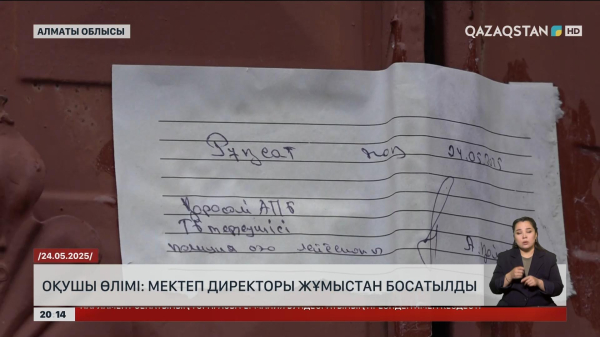 АЛМАТЫ ОБЛЫСЫ
QAZAQSTAN HD
Рұқсат жоқ 24.05.2025
Қарасай АПБ
ТБ тергеушісі
полиция аға лейтенанты
/24.05.2025/
ОҚУШЫ ӨЛІМІ: МЕКТЕП ДИРЕКТОРЫ ЖҰМЫСТАН БОСАТЫЛДЫ
20 14